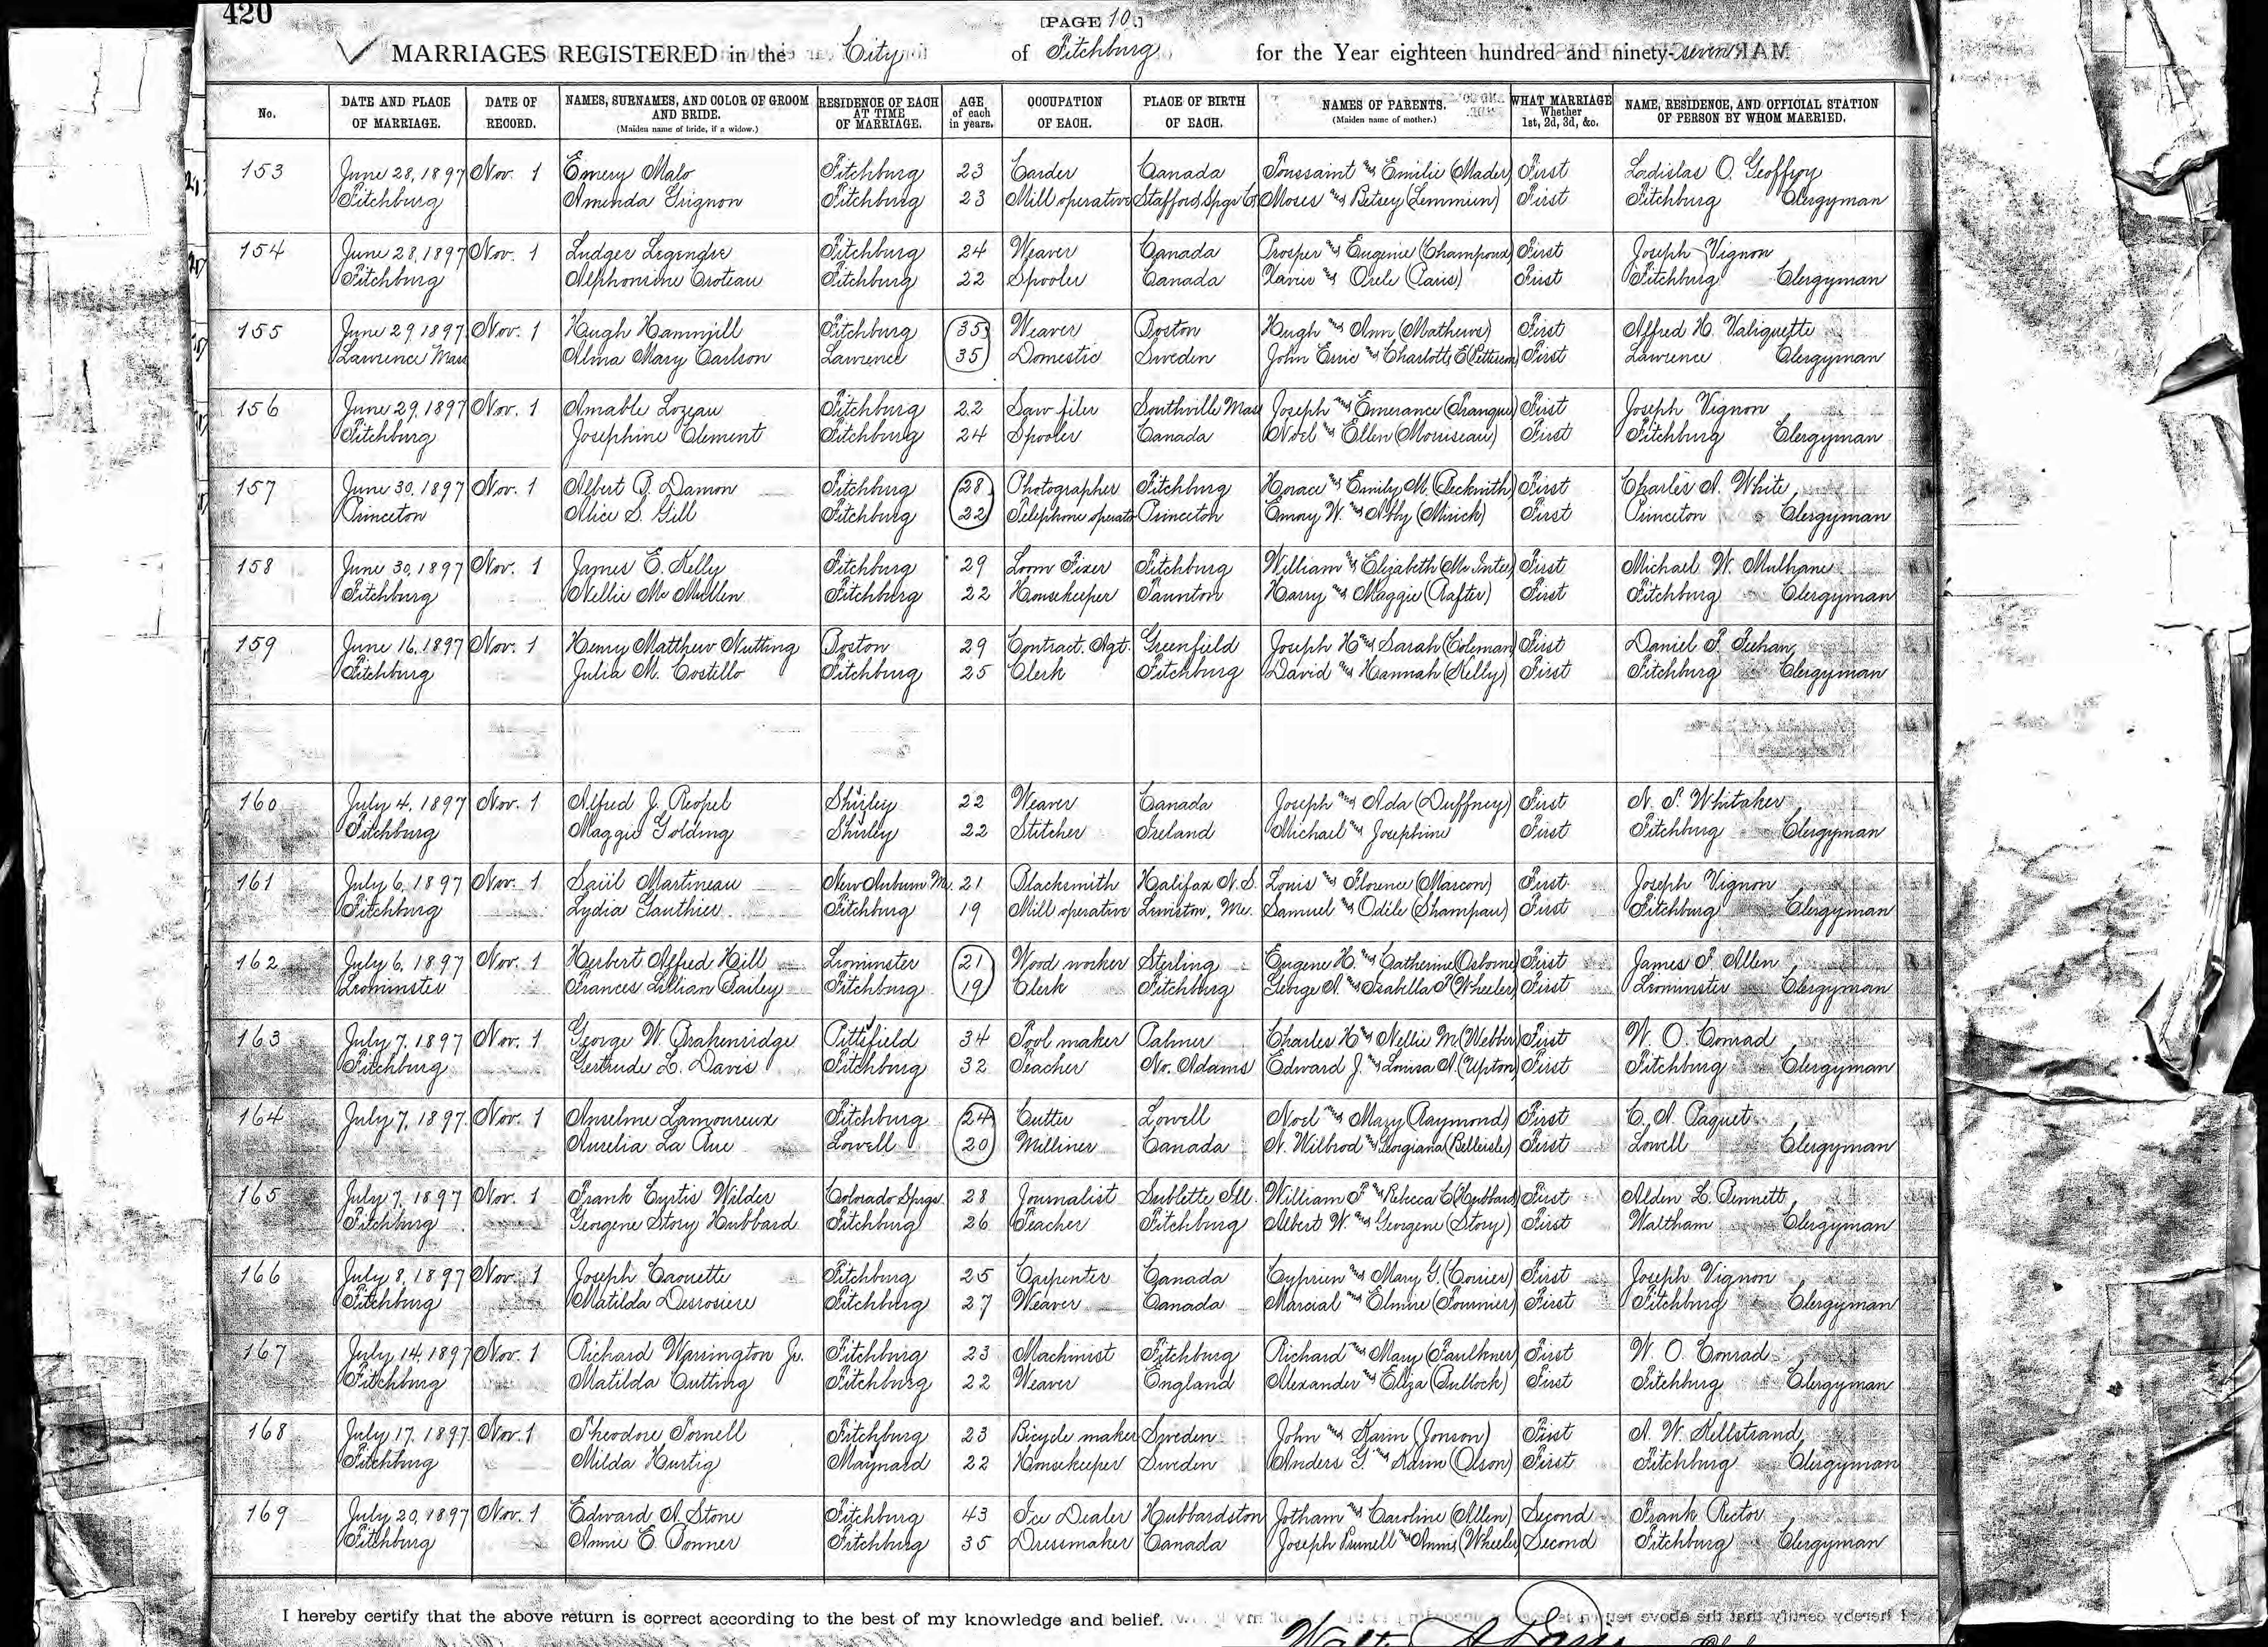 420
[PAGE 10.]
MARRIAGES REGISTERED in the City of Fitchburg for the Year eighteen hundred and ninety-seven
No. DATE AND PLACE OF MARRIAGE. DATE OF RECORD. NAMES, SURNAMES, AND COLOR OF GROOM AND BRIDE. (Maiden name of bride, if a widow.) RESIDENCE OF EACH AT TIME OF MARRIAGE. AGE of each in years. OCCUPATION OF EACH. PLACE OF BIRTH OF EACH. NAMES OF PARENTS. (Maiden name of mother.) WHAT MARRIAGE Whether 1st, 2d, 3d, &c. NAME, RESIDENCE, AND OFFICIAL STATION OF PERSON BY WHOM MARRIED.
153 June 28, 1897 Nov. 1 Emery Malo Fitchburg 23 Carder Canada Toussaint and Emilie (Mader) First Ladislas O. Geoffroy
Fitchburg Amenda Grignon Fitchburg 23 Mill operative Stafford Spgs Ct Moses and Betsey (Lemmiun) First Fitchburg Clergyman
154 June 28, 1897 Nov. 1 Ludger Legendre Fitchburg 24 Weaver Canada Prosper and Eugenie (Champoux) First Joseph Vignon
Fitchburg Alphonsine Croteau Fitchburg 22 Spooler Canada Xavier and Orele (Paris) First Fitchburg Clergyman
155 June 29 1897 Nov. 1 Hugh Hammill Fitchburg 35 Weaver Boston Hugh and Ann (Mathews) First Alfred H. Valiquette
Lawrence Mass Alma Mary Carlson Lawrence 35 Domestic Sweden John Erric and Charlotte E (Petterson) First Lawrence Clergyman
156 June 29, 1897 Nov. 1 Amable Lozeau Fitchburg 22 Saw filer Southville Mass Joseph and Emerance (Tranque) First Joseph Vignon
Fitchburg Josephine Clement Fitchburg 24 Spooler Canada Noel and Ellen (Morriseau) First Fitchburg Clergyman
157 June 30, 1897 Nov. 1 Albert B. Damon Fitchburg 28 Photographer Fitchburg Horace and Emily M. (Beckwith) First Charles A. White
Princeton Alice S. Gill Fitchburg 22 Telephone operator Princeton Emory W. and Abby (Mirick) First Princeton Clergyman
158 June 30, 1897 Nov. 1 James E. Kelly Fitchburg 29 Loom Fixer Fitchburg William and Elizabeth (McIntee) First Michael W. Mulhane
Fitchburg Nellie McMullen Fitchburg 22 Housekeeper Taunton Harry and Maggie (Rafter) First Fitchburg Clergyman
159 June 16, 1897 Nov. 1 Henry Matthew Nutting Boston 29 Contract. Agt. Greenfield Joseph H and Sarah (Coleman) First Daniel F. Feehan
Fitchburg Julia M. Costello Fitchburg 25 Clerk Fitchburg David and Hannah (Kelly) First Fitchburg Clergyman
160 July 4, 1897 Nov. 1 Alfred J. Reopel Shirley 22 Weaver Canada Joseph and Ada (Duffney) First N. T. Whitaker
Fitchburg Maggie Golding Shirley 22 Stitcher Ireland Michael and Josephine First Fitchburg Clergyman
161 July 6, 1897 Nov. 1 Saül Martineau New Auburn Me. 21 Blacksmith Halifax N. S. Louis and Florence (Marcon) First Joseph Vignon
Fitchburg Lydia Gauthier Fitchburg 19 Mill operative Lewiston, Me. Samuel and Odile (Shampau) First Fitchburg Clergyman
162 July 6, 1897 Nov. 1 Herbert Alfred Hill Leominster 21 Wood worker Sterling Eugene H. and Catherine (Osborne) First James F. Allen
Leominster Frances Lillian Bailey Fitchburg 19 Clerk Fitchburg George A. and Isabella F (Wheeler) First Leominster Clergyman
163 July 7, 1897 Nov. 1 George W. Brakenridge Pittsfield 34 Tool maker Palmer Charles H and Nellie M (Webber) First W. O. Conrad
Fitchburg Gertrude L. Davis Fitchburg 32 Teacher No. Adams Edward J. and Louisa A. (Upton) First Fitchburg Clergyman
164 July 7, 1897 Nov. 1 Anselme Lamoureux Fitchburg 24 Cutter Lowell Noel and Mary (Raymond) First C. A. Paquet
Aurelia La Rue Lowell 20 Milliner Canada N. Wilbrod and Georgiana (Bellerisle) First Lowell Clergyman
165 July 7, 1897 Nov. 1 Frank Curtis Wilder Colorado Spgs. 28 Journalist Sublette Ill. William F and Rebecca C (Hubbard) First Alden L. Bennett
Fitchburg Georgene Story Hubbard Fitchburg 26 Teacher Fitchburg Albert W. and Georgene (Story) First Waltham Clergyman
166 July 8, 1897 Nov. 1 Joseph Caouette Fitchburg 25 Carpenter Canada Cyprien and Mary G. (Corrier) First Joseph Vignon
Fitchburg Matilda Desrosiere Fitchburg 27 Weaver Canada Marcial and Elmire (Fournier) First Fitchburg Clergyman
167 July 14, 1897 Nov. 1 Richard Warrington Jr. Fitchburg 23 Machinist Fitchburg Richard and Mary (Faulkner) First W. O. Conrad
Fitchburg Matilda Cutting Fitchburg 22 Weaver England Alexander and Eliza (Bullock) First Fitchburg Clergyman
168 July 17, 1897 Nov. 1 Theodore Tornell Fitchburg 23 Bicycle maker Sweden John and Karin (Jonson) First A. W. Hellstrand
Fitchburg Milda Hurtig Maynard 22 Housekeeper Sweden Anders G. and Karin (Olson) First Fitchburg Clergyman
169 July 20, 1897 Nov. 1 Edward A. Stone Fitchburg 43 Ice Dealer Hubbardston Jotham and Caroline (Allen) Second Frank Rector
Fitchburg Annie E. Bonner Fitchburg 35 Dressmaker Canada Joseph Prunell and Annis (Wheeler) Second Fitchburg Clergyman
I hereby certify that the above return is correct according to the best of my knowledge and belief.